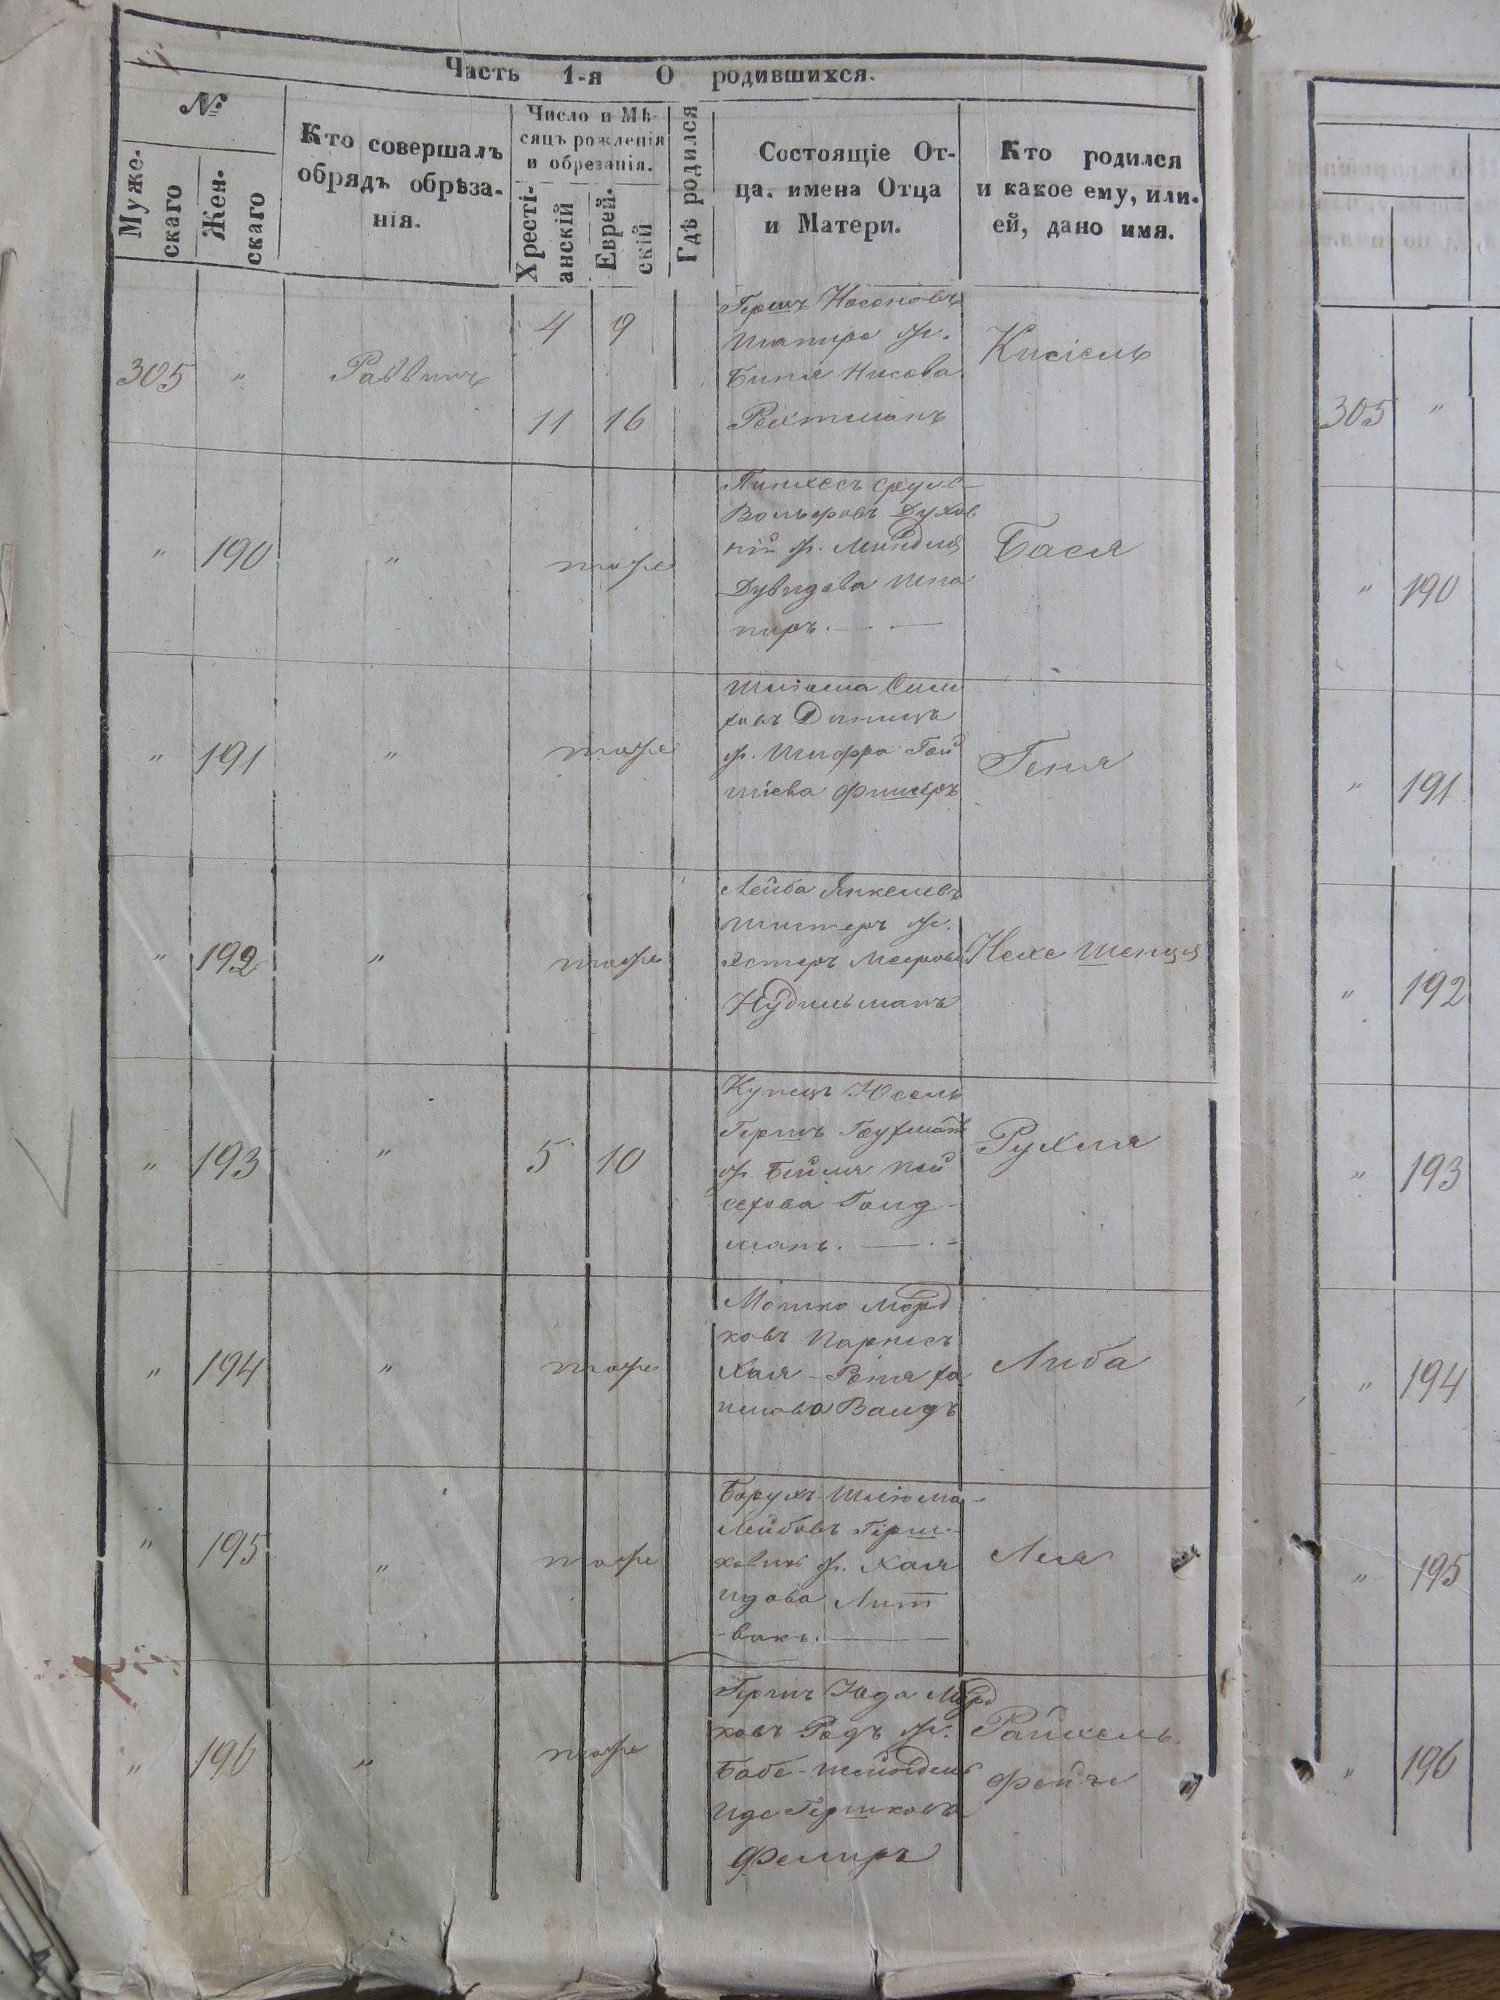 Часть 1-я О родившихся.
№
Муже-
скаго
Жен-
скаго
Кто совершалъ
обрядъ обрѣза-
нія.
Число и Мѣ-
сяцъ рожденія
и обрезанія.
Хресті-
анскій
Еврей-
скій
Гдѣ родился
Состоящіе От-
ца, имена Отца
и Матери.
Кто родился
и какое ему, или-
ей, дано имя.
305 " Раввинъ
4 9
11 16
Гершъ Носоновъ
Шапиро ж.
Бипя Нисова
Рехтманъ
Кисіель
" 190 " тоже
Пинхесъ Сруль
Вольфовъ Духов
ній ж. Миндля
Дувидова Шпа
пиръ.
Бася
" 191 " тоже
Шліома
ховъ
ж. Шифра Гой
шіева Фишеръ
Геня
" 192 " тоже
Лейба Янкелевъ
Шистеръ ж.
Эстеръ Меерова
Нудильманъ
Нехе Шенця
" 193 " 5 10
Купецъ Юсель
Гершъ Гоухманъ
ж. Бейля Пей
сехова Голд-
манъ.
Рухля
" 194 " тоже
Мошко Морд
ковъ Парнесъ
Хая-Рейзя
Валдъ
Либа
" 195 " тоже
Борухъ-Шліома-
Лейбовъ Герш-
ковичъ ж. Хая
Идова Лит
-вакъ.
Лея
" 196 " тоже
Гершъ Юда Морд
ковъ Родъ ж.
Бабе-Шейндель
Иде Гершковъ
Фелиръ
Райхель
Фейге
305 "
" 190
" 191
" 192
" 193
" 194
" 195
" 196